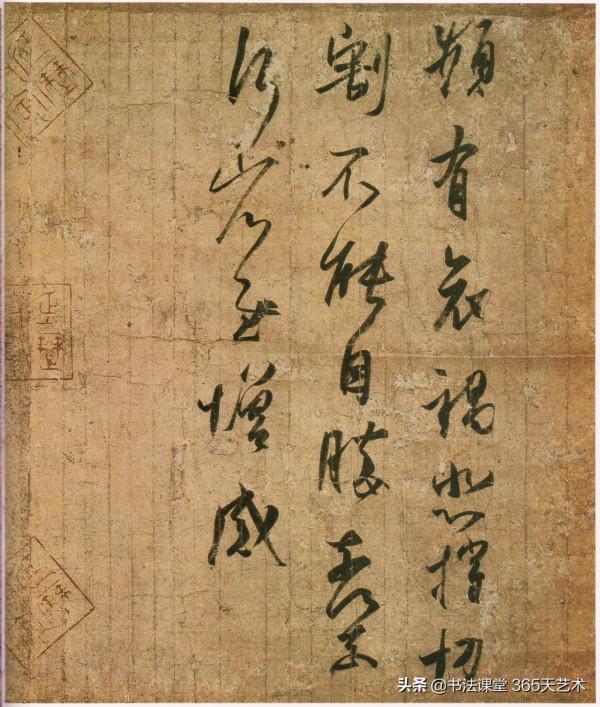 頻有哀禍悲摧切
割不能自勝奈何奈
何省慰增感
头条 @书法课堂 365天艺术